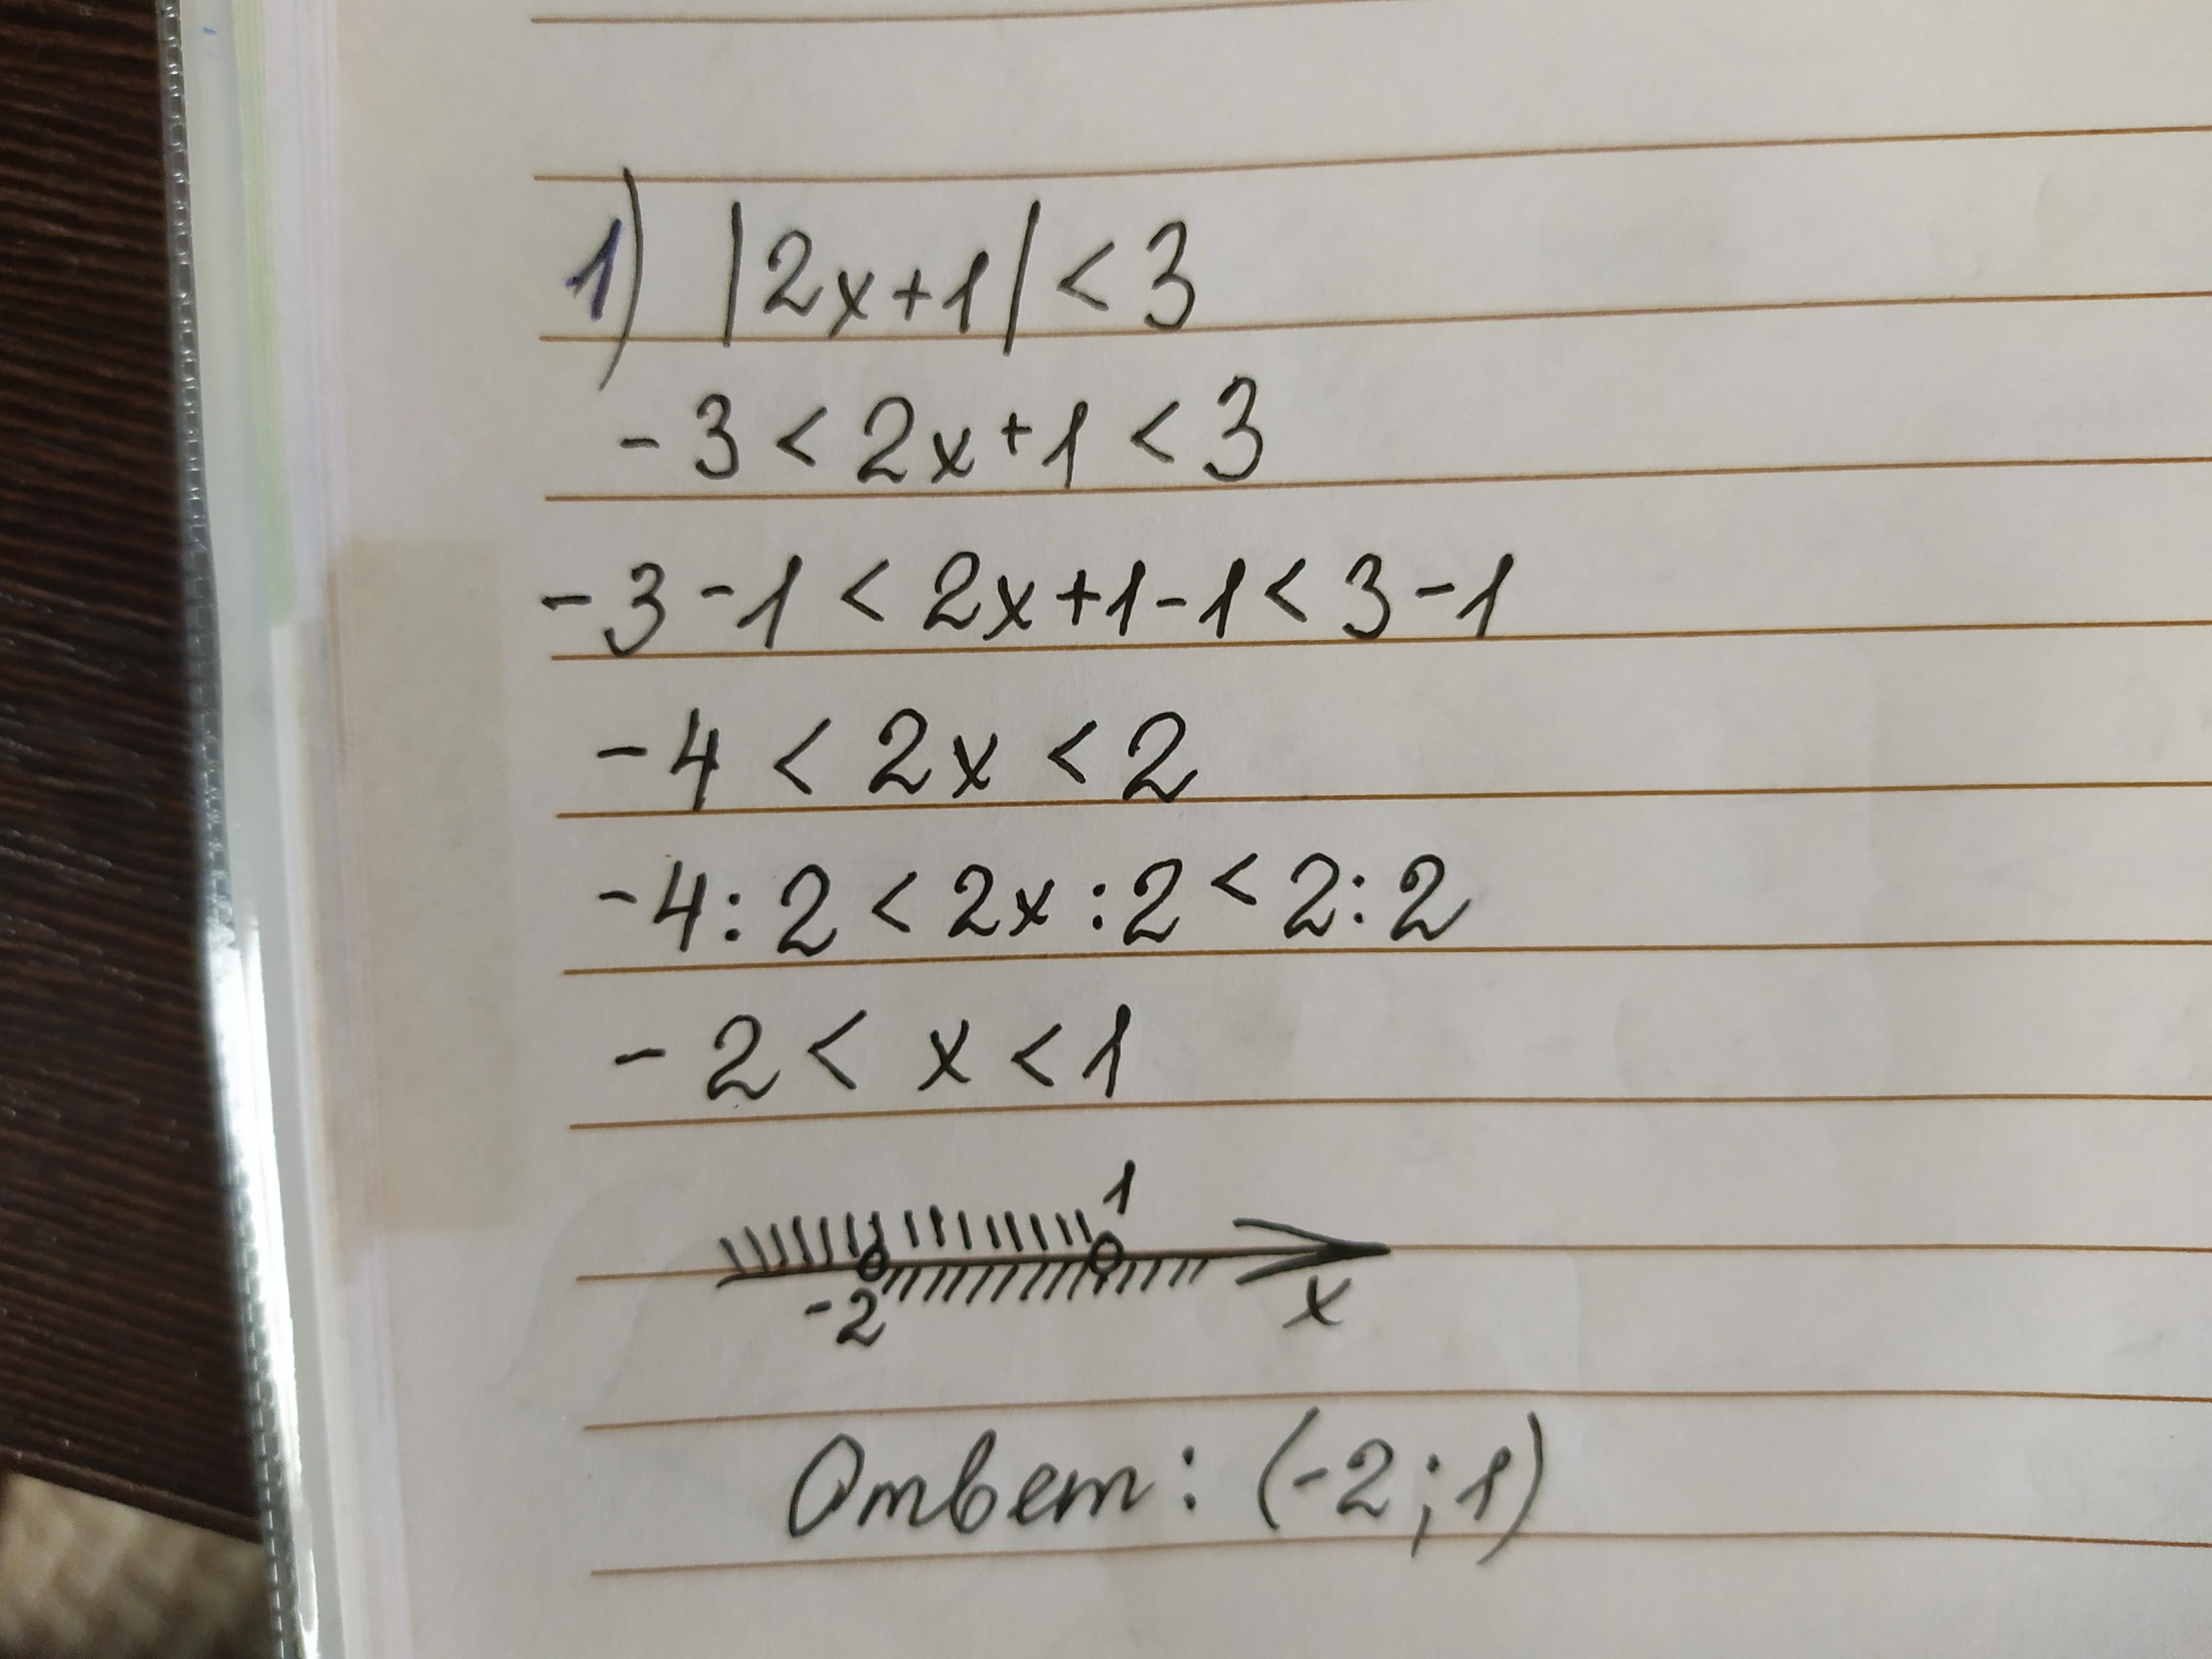 1) |2x+1|<3
-3<2x+1<3
-3-1<2x+1-1<3-1
-4<2x<2
-4:2<2x:2<2:2
-2<x<1
1
-2 x
Ответ: (-2;1)